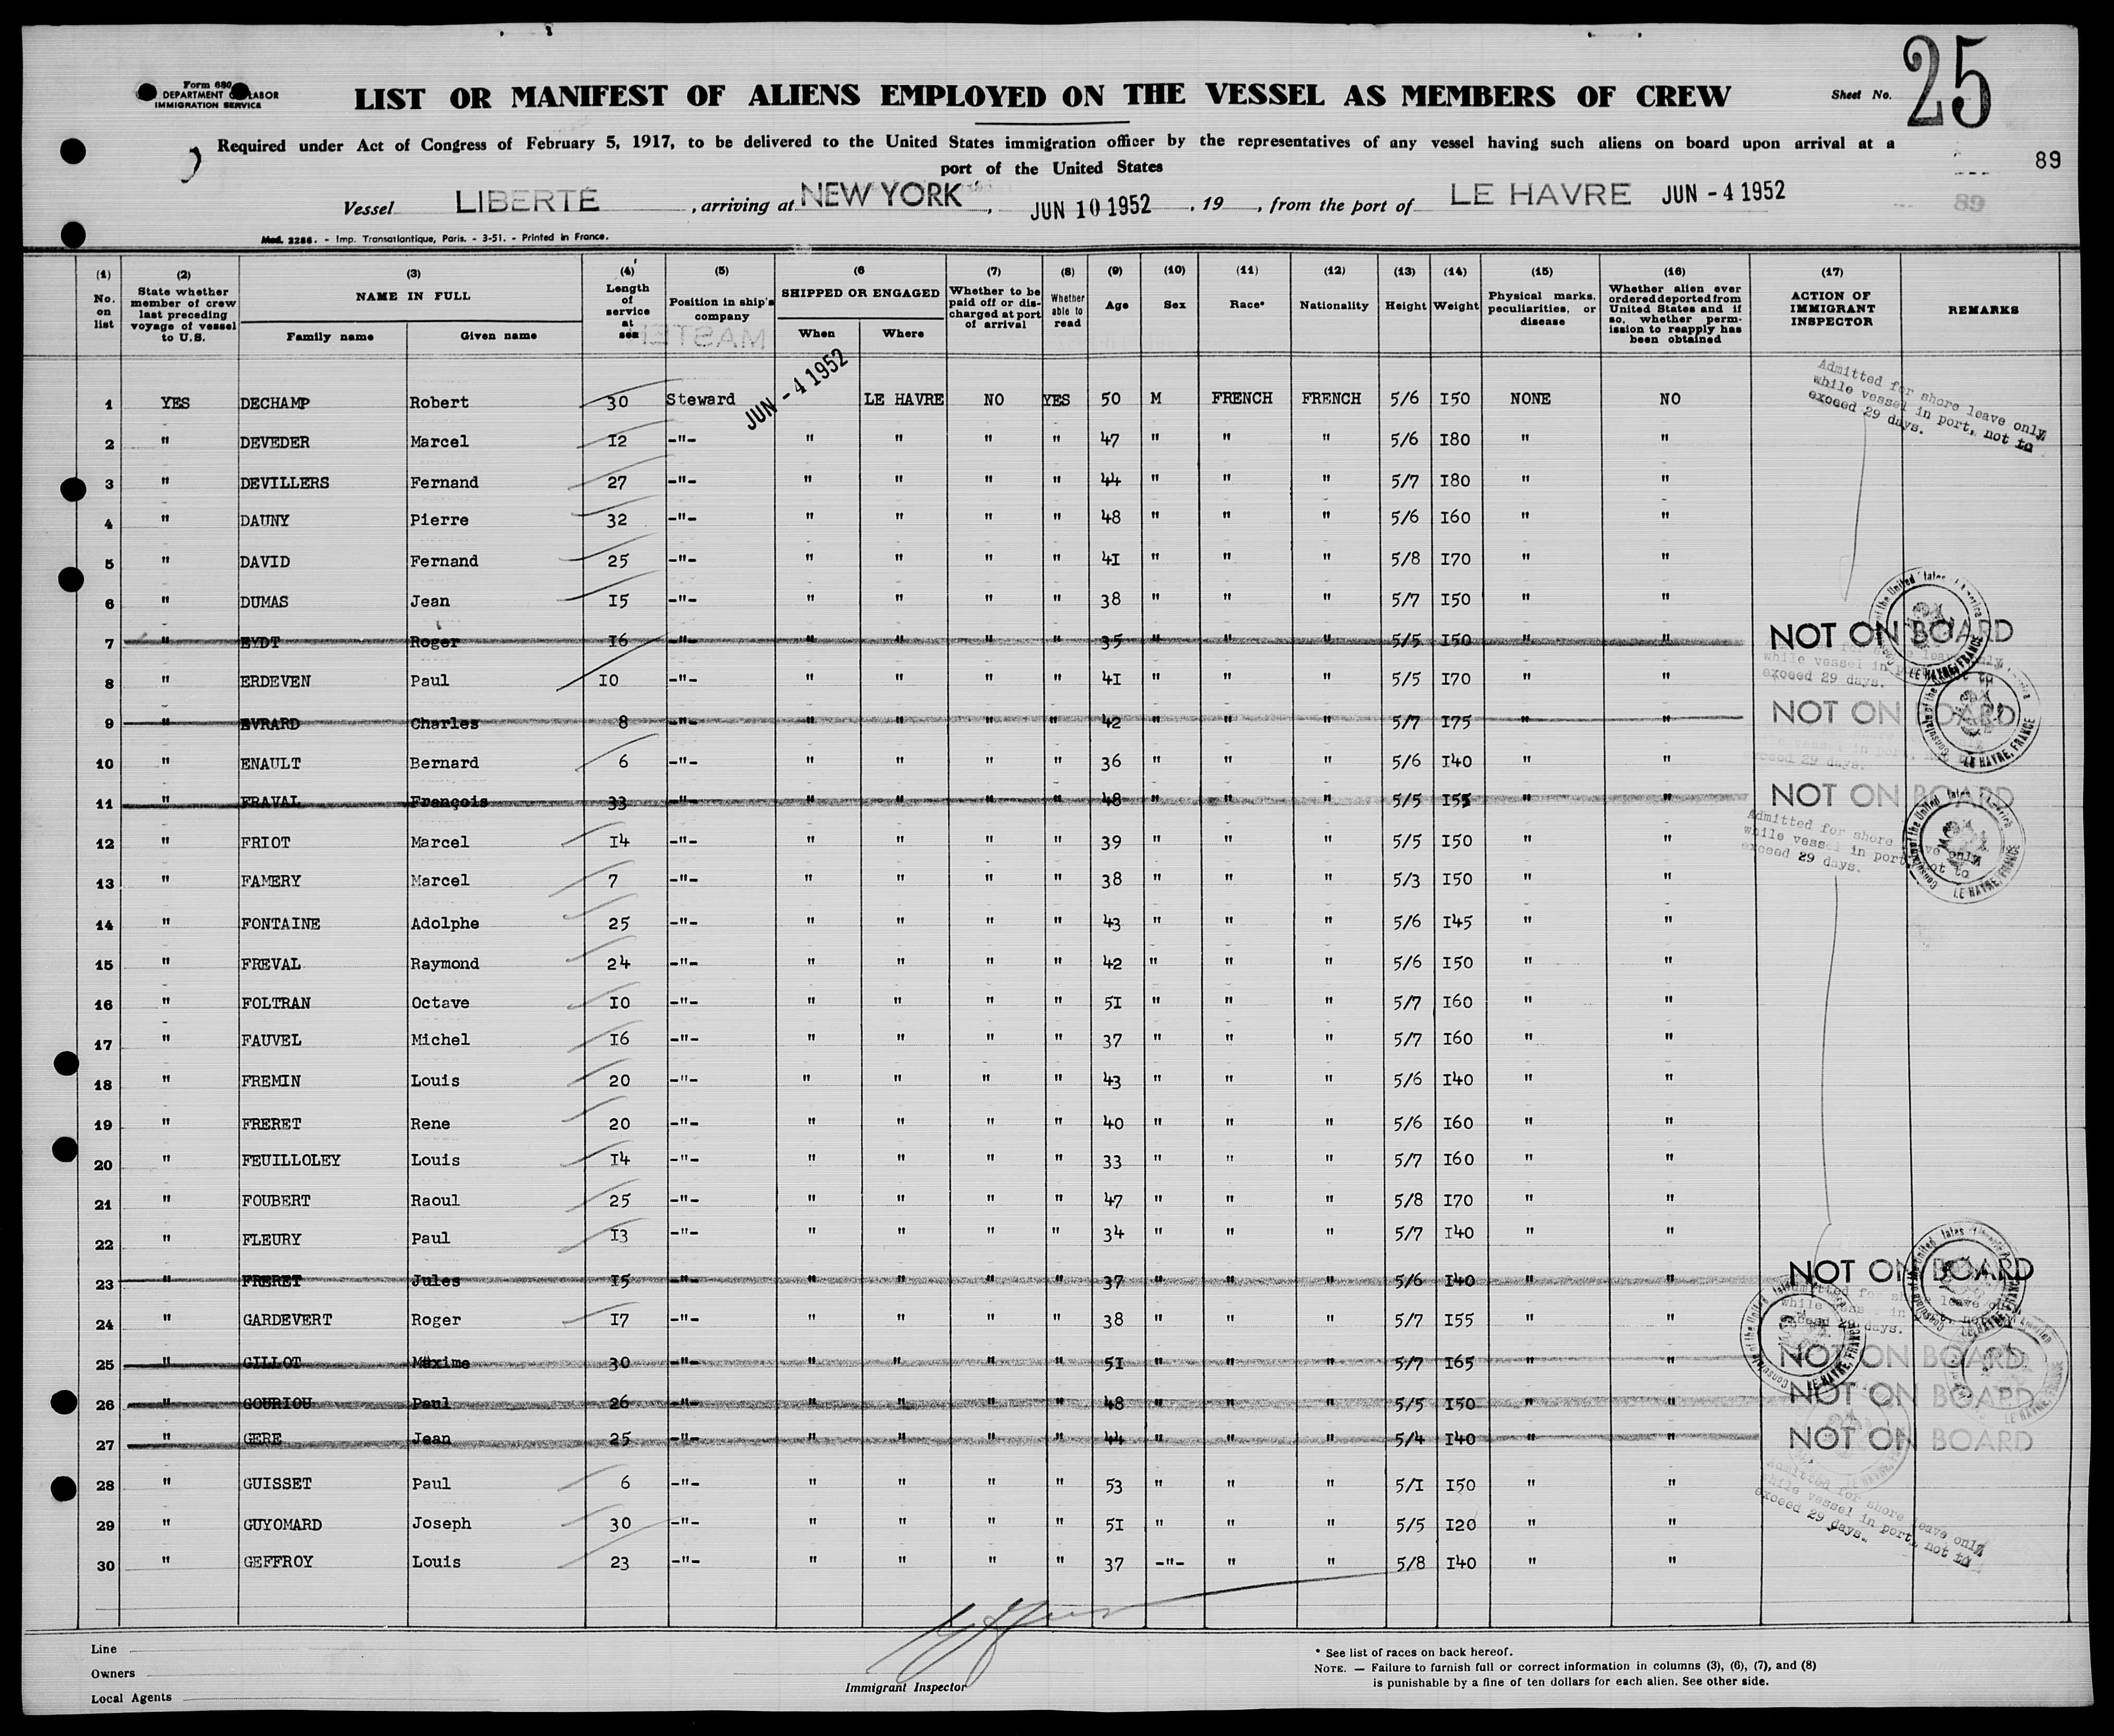 Form 680
DEPARTMENT OF LABOR
IMMIGRATION SERVICE
LIST OR MANIFEST OF ALIENS EMPLOYED ON THE VESSEL AS MEMBERS OF CREW
Sheet No. 25
Required under Act of Congress of February 5, 1917, to be delivered to the United States immigration officer by the representatives of any vessel having such aliens on board upon arrival at a
port of the United States
89
89
Vessel LIBERTÉ, arriving at NEW YORK, JUN 10 1952, 19 , from the port of LE HAVRE JUN - 4 1952
Mod. 2286. - Imp. Transatlantique, Paris. - 3-51. - Printed in France.
(1) No. on list
(2) State whether member of crew last preceding voyage of vessel to U.S.
(3) NAME IN FULL Family name Given name
(4) Length of service at sea
(5) Position in ship's company
(6 SHIPPED OR ENGAGED When Where
(7) Whether to be paid off or discharged at port of arrival
(8) Whether able to read
(9) Age
(10) Sex
(11) Race*
(12) Nationality
(13) Height
(14) Weight
(15) Physical marks, peculiarities, or disease
(16) Whether alien ever ordered deported from United States and if so, whether permission to reapply has been obtained
(17) ACTION OF IMMIGRANT INSPECTOR
REMARKS
MASTER
JUN - 4 1952
1 YES DECHAMP Robert 30 Steward LE HAVRE NO YES 50 M FRENCH FRENCH 5/6 I50 NONE NO
Admitted for shore leave only
while vessel in port, not to
exceed 29 days.
2 " DEVEDER Marcel I2 -"- " " " " 47 " " " 5/6 I80 " "
3 " DEVILLERS Fernand 27 -"- " " " " 44 " " " 5/7 I80 " "
4 " DAUNY Pierre 32 -"- " " " " 48 " " " 5/6 I60 " "
5 " DAVID Fernand 25 -"- " " " " 4I " " " 5/8 I70 " "
6 " DUMAS Jean I5 -"- " " " " 38 " " " 5/7 I50 " "
7 " EYDT Roger I6 -"- " " " " 35 " " " 5/5 I50 " " NOT ON BOARD
8 " ERDEVEN Paul I0 -"- " " " " 4I " " " 5/5 I70 " "
while vessel in
exceed 29 days.
9 " EVRARD Charles 8 -"- " " " " 42 " " " 5/7 I75 " " NOT ON BOARD
10 " ENAULT Bernard 6 -"- " " " " 36 " " " 5/6 I40 " "
11 " FRAVAL François 33 -"- " " " " 48 " " " 5/5 I55 " " NOT ON BOARD
12 " FRIOT Marcel I4 -"- " " " " 39 " " " 5/5 I50 " "
Admitted for shore leave only
while vessel in port, not to
exceed 29 days.
13 " FAMERY Marcel 7 -"- " " " " 38 " " " 5/3 I50 " "
14 " FONTAINE Adolphe 25 -"- " " " " 43 " " " 5/6 I45 " "
15 " FREVAL Raymond 24 -"- " " " " 42 " " " 5/6 I50 " "
16 " FOLTRAN Octave I0 -"- " " " " 5I " " " 5/7 I60 " "
17 " FAUVEL Michel I6 -"- " " " " 37 " " " 5/7 I60 " "
18 " FREMIN Louis 20 -"- " " " " 43 " " " 5/6 I40 " "
19 " FRERET Rene 20 -"- " " " " 40 " " " 5/6 I60 " "
20 " FEUILLOLEY Louis I4 -"- " " " " 33 " " " 5/7 I60 " "
21 " FOUBERT Raoul 25 -"- " " " " 47 " " " 5/8 I70 " "
22 " FLEURY Paul I3 -"- " " " " 34 " " " 5/7 I40 " "
23 " FRERET Jules I5 -"- " " " " 37 " " " 5/6 I40 " " NOT ON BOARD
24 " GARDEVERT Roger I7 -"- " " " " 38 " " " 5/7 I55 " "
25 " GILLOT Maxime 30 -"- " " " " 5I " " " 5/7 I65 " " NOT ON BOARD
26 " GOURIOU Paul 26 -"- " " " " 48 " " " 5/5 I50 " " NOT ON BOARD
27 " GERE Jean 25 -"- " " " " 44 " " " 5/4 I40 " " NOT ON BOARD
28 " GUISSET Paul 6 -"- " " " " 53 " " " 5/I I50 " "
Admitted for shore leave only
while vessel in port, not to
exceed 29 days.
29 " GUYOMARD Joseph 30 -"- " " " " 5I " " " 5/5 I20 " "
30 " GEFFROY Louis 23 -"- " " " " 37 -"- " " 5/8 I40 " "
Line
Owners
Local Agents
Immigrant Inspector
* See list of races on back hereof.
NOTE. — Failure to furnish full or correct information in columns (3), (6), (7), and (8)
is punishable by a fine of ten dollars for each alien. See other side.